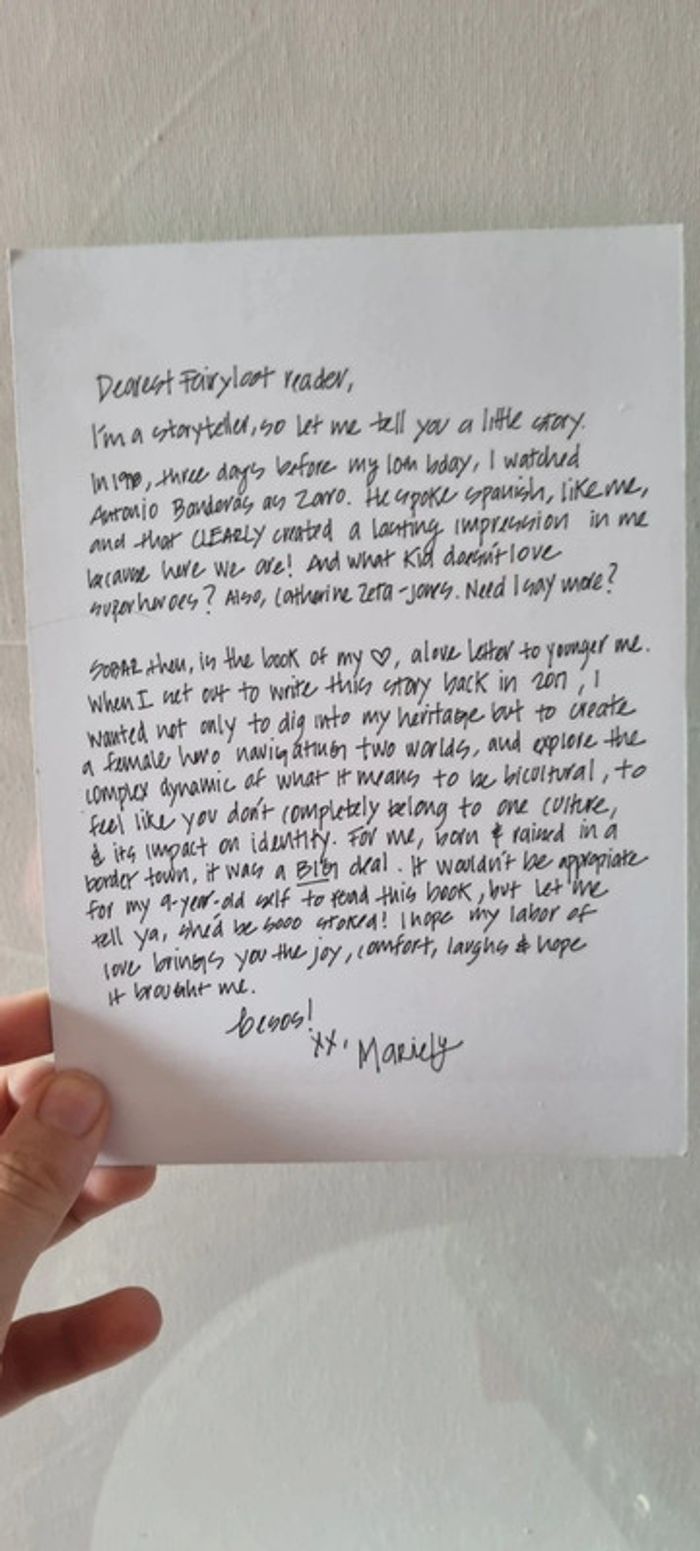 Dearest Fairyloot reader,
I'm a storyteller, so let me tell you a little story.
In 1998, three days before my 10th bday, I watched
Antonio Banderas as Zorro. He spoke Spanish, like me,
and that CLEARLY created a lasting impression in me
because here we are! And what kid doesn't love
superheroes? Also, Catherine Zeta-Jones. Need I say more?
SOBAR, then, is the book of my ♡, a love letter to younger me.
When I set out to write this story back in 2017, I
wanted not only to dig into my heritage but to create
a female hero navigating two worlds, and explore the
complex dynamic of what it means to be bicultural, to
feel like you don't completely belong to one culture,
& its impact on identity. For me, born & raised in a
border town, it was a BIG deal. It wouldn't be appropiate
for my 9-year-old self to read this book, but let me
tell ya, she'd be sooo stoked! I hope my labor of
love brings you the joy, comfort, laughs & hope
it brought me.
besos!
xx, Mariely